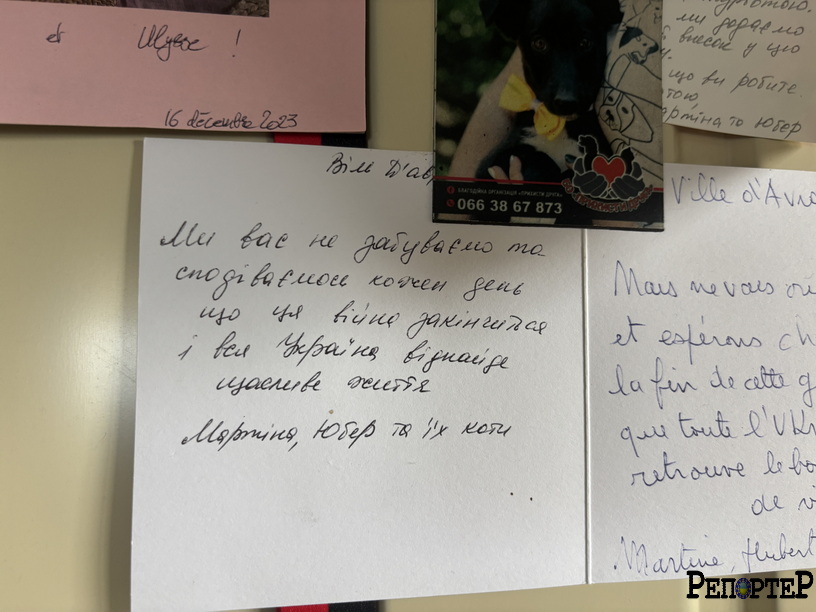 et Ulysse !
16 décembre 2023
ми додаємо
внесок у цю
що ви робите.
та Юбер
БЛАГОДІЙНА ОРГАНІЗАЦІЯ
066 38 67 873
Віль Д'авр
Ми вас не забуваємо та
сподіваємось кожен день
що ця війна закінчиться
і вся Україна віднайде
щасливе життя
Мартіна, Юбер та їх коти
Ville d'Avra
Mais ne vous ou
et espérons ch
la fin de cette g
que toute l'Ukr
retrouve le bo
de vi
Martine, Hubert
РЕПОРТЕР